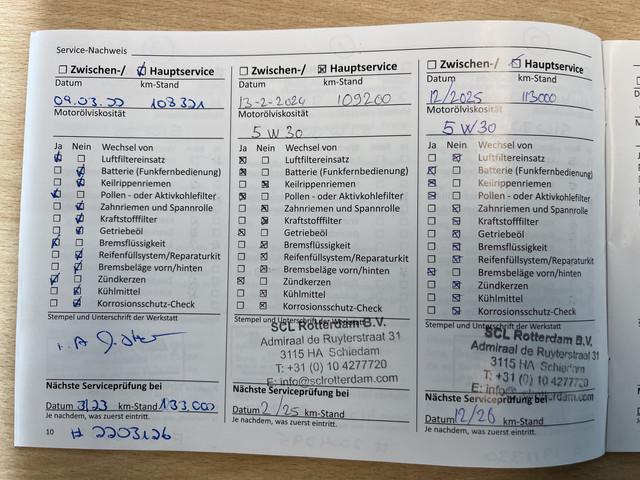 Service-Nachweis
Zwischen-/ Hauptservice
Datum km-Stand
09.03.22 108321
Motorölviskosität
Ja Nein Wechsel von
Luftfiltereinsatz
Batterie (Funkfernbedienung)
Keilrippenriemen
Pollen - oder Aktivkohlefilter
Zahnriemen und Spannrolle
Kraftstofffilter
Getriebeöl
Bremsflüssigkeit
Reifenfüllsystem/Reparaturkit
Bremsbeläge vorn/hinten
Zündkerzen
Kühlmittel
Korrosionsschutz-Check
Stempel und Unterschrift der Werkstatt
Nächste Serviceprüfung bei
Datum 3/23 km-Stand 133.000
Je nachdem, was zuerst eintritt.
10 # 2203126
Zwischen-/ Hauptservice
Datum km-Stand
13-2-2024 109200
Motorölviskosität
5 W 30
Ja Nein Wechsel von
Luftfiltereinsatz
Batterie (Funkfernbedienung)
Keilrippenriemen
Pollen - oder Aktivkohlefilter
Zahnriemen und Spannrolle
Kraftstofffilter
Getriebeöl
Bremsflüssigkeit
Reifenfüllsystem/Reparaturkit
Bremsbeläge vorn/hinten
Zündkerzen
Kühlmittel
Korrosionsschutz-Check
Stempel und Unterschrift der Werkstatt
SCL Rotterdam B.V.
Admiraal de Ruyterstraat 31
3115 HA Schiedam
T: +31 (0) 10 4277720
E: info@sclrotterdam.com
Nächste Serviceprüfung bei
Datum 2/25 km-Stand
Je nachdem, was zuerst eintritt.
Zwischen-/ Hauptservice
Datum km-Stand
12/2025 113000
Motorölviskosität
5 W30
Ja Nein Wechsel von
Luftfiltereinsatz
Batterie (Funkfernbedienung)
Keilrippenriemen
Pollen - oder Aktivkohlefilter
Zahnriemen und Spannrolle
Kraftstofffilter
Getriebeöl
Bremsflüssigkeit
Reifenfüllsystem/Reparaturkit
Bremsbeläge vorn/hinten
Zündkerzen
Kühlmittel
Korrosionsschutz-Check
Stempel und Unterschrift der Werkstatt
SCL Rotterdam B.V.
Admiraal de Ruyterstraat 31
3115 HA Schiedam
T: +31 (0) 10 4277720
E: info@sclrotterdam.com
Nächste Serviceprüfung bei
Datum 12/26 km-Stand
Je nachdem, was zuerst eintritt.